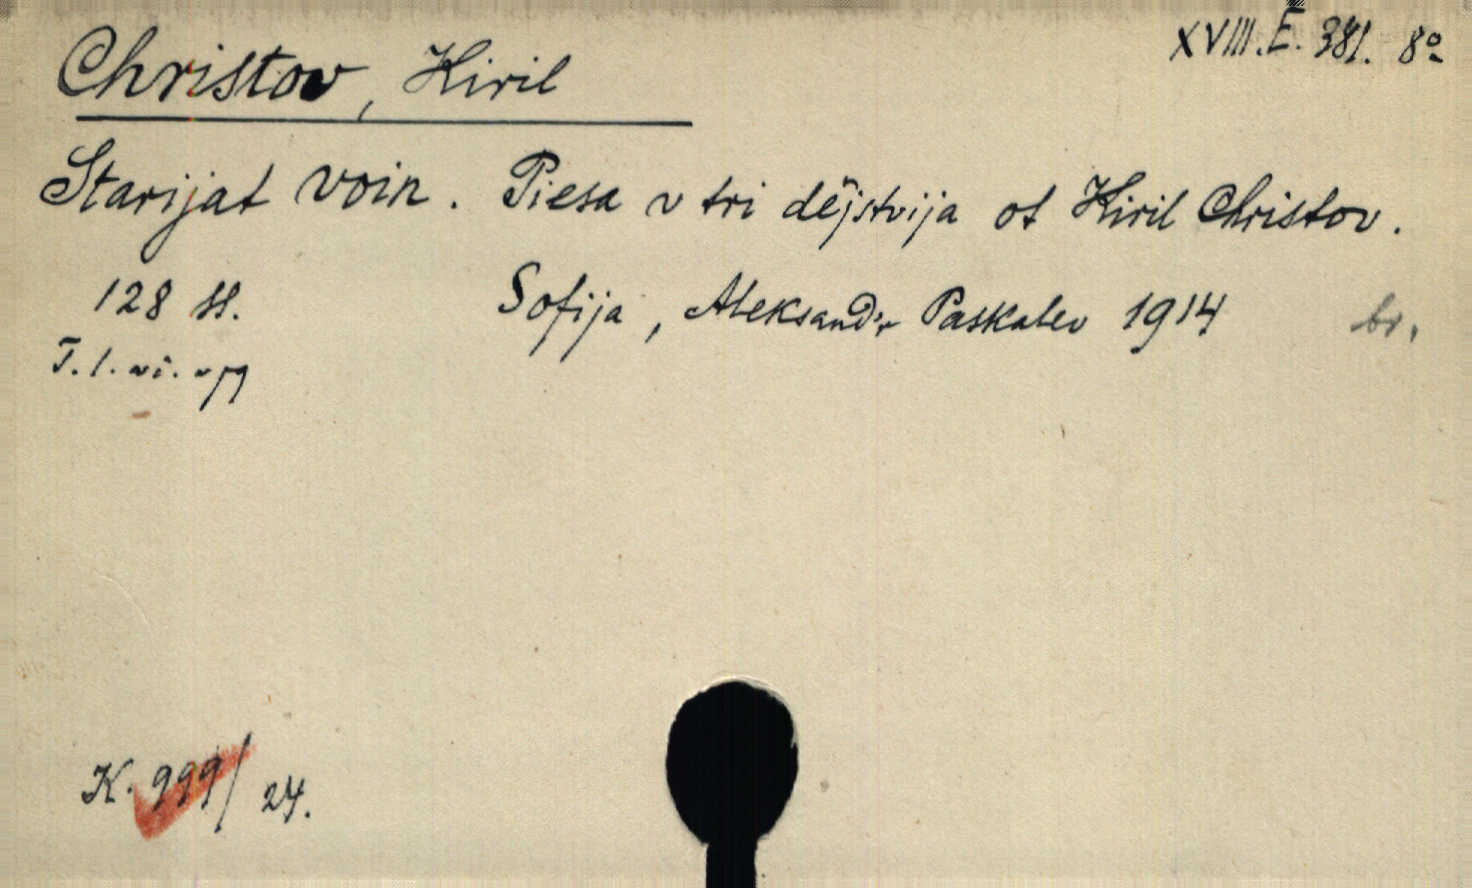 XVIII. E. 381. 8º
Christov, Kiril
Starijat voin. Piesa v tri dějstvija ot Kiril Christov.
128 st. Sofija, Aleksandr Paskalev 1914 br.
K. 999/24.